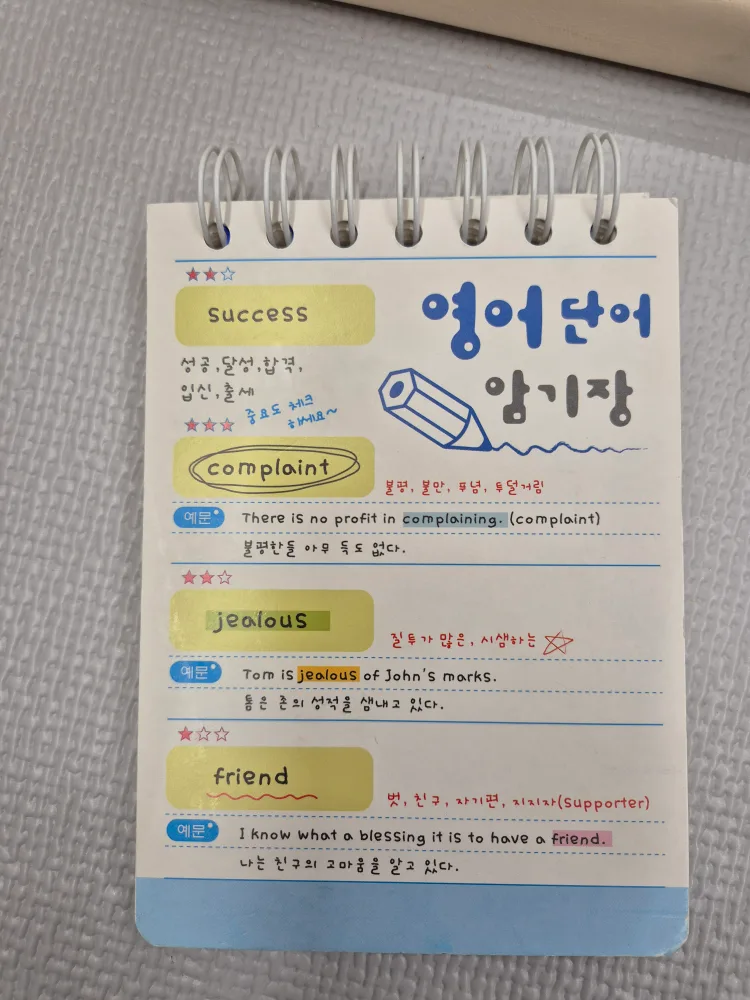 success
영어 단어
암기장
성공, 달성, 합격,
입신, 출세
중요도 체크
하세요~
complaint
불평, 불만, 푸념, 투덜거림
예문 There is no profit in complaining. (complaint)
불평한들 아무 득도 없다.
jealous
질투가 많은, 시샘하는
예문 Tom is jealous of John's marks.
톰은 존의 성적을 샘내고 있다.
friend
벗, 친구, 자기편, 지지자(supporter)
예문 I know what a blessing it is to have a friend.
나는 친구의 고마움을 알고 있다.